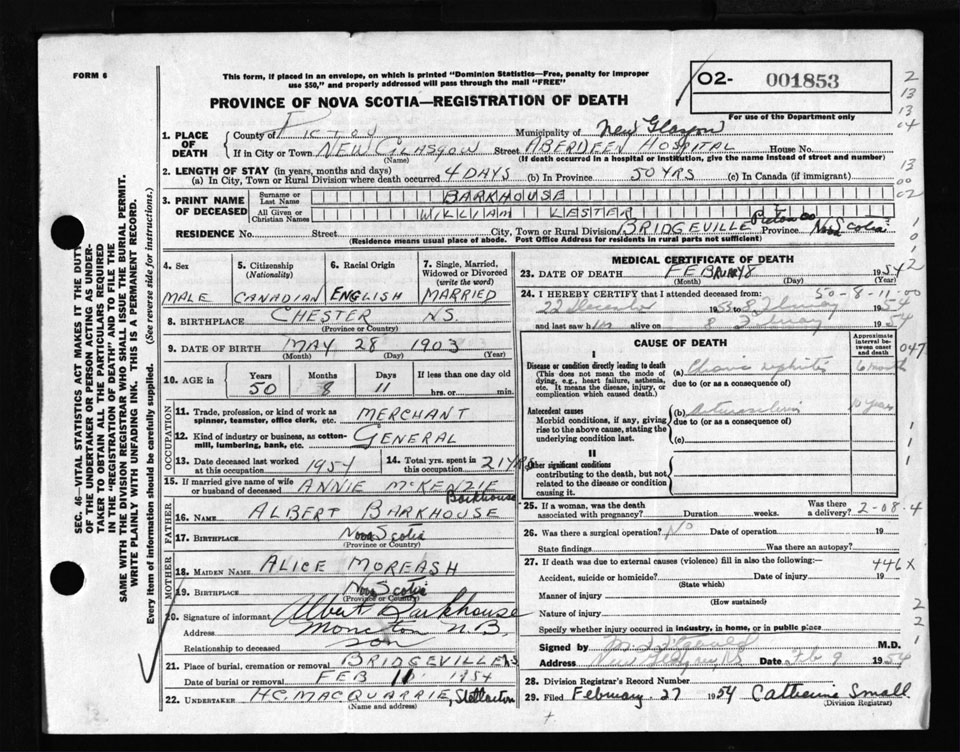 FORM 6
This form, if placed in an envelope, on which is printed "Dominion Statistics—Free, penalty for improper
use $50," and properly addressed will pass through the mail "FREE"
O2- 001853
For use of the Department only
PROVINCE OF NOVA SCOTIA—REGISTRATION OF DEATH
1. PLACE OF DEATH
County of PICTOU Municipality of New Glasgow
If in City or Town NEW GLASGOW Street ABERDEEN HOSPITAL House No.
(Name) (If death occurred in a hospital or institution, give the name instead of street and number)
2. LENGTH OF STAY (in years, months and days)
(a) In City, Town or Rural Division where death occurred 4 DAYS (b) In Province 50 YRS (c) In Canada (if immigrant)
3. PRINT NAME OF DECEASED
Surname or Last Name BARKHOUSE
All Given or Christian Names WILLIAM LESTER
RESIDENCE No. Street City, Town or Rural Division BRIDGEVILLE Pictou Co Province Nova Scotia
(Residence means usual place of abode. Post Office Address for residents in rural parts not sufficient)
4. Sex MALE
5. Citizenship (Nationality) CANADIAN
6. Racial Origin ENGLISH
7. Single, Married, Widowed or Divorced (write the word) MARRIED
8. BIRTHPLACE CHESTER N.S.
(Province or Country)
9. DATE OF BIRTH MAY 28 1903
(Month) (Day) (Year)
10. AGE in Years 50 Months 8 Days 11 If less than one day old
hrs. or min.
OCCUPATION
11. Trade, profession, or kind of work as spinner, teamster, office clerk, etc. MERCHANT
12. Kind of industry or business, as cotton-mill, lumbering, bank, etc. GENERAL
13. Date deceased last worked at this occupation 1954
14. Total yrs. spent in this occupation 21 YRS
15. If married give name of wife or husband of deceased ANNIE McKENZIE Barkhouse
FATHER
16. NAME ALBERT BARKHOUSE
17. BIRTHPLACE Nova Scotia
(Province or Country)
MOTHER
18. MAIDEN NAME ALICE MOREASH
19. BIRTHPLACE Nova Scotia
(Province or Country)
20. Signature of informant Albert Barkhouse
Address Moncton N.B.
Relationship to deceased son
21. Place of burial, cremation or removal BRIDGEVILLE N.S
Date of burial or removal FEB 11 1954
22. UNDERTAKER H.C. MACQUARRIE, Stellarton
(Name and address)
MEDICAL CERTIFICATE OF DEATH
23. DATE OF DEATH FEBRUARY 8 1954
(Month) (Day) (Year)
50-8-11-00
24. I HEREBY CERTIFY that I attended deceased from:
22 December 1953 to 8 February 1954
and last saw him alive on 8 February 1954
CAUSE OF DEATH
Approximate interval between onset and death
I
Disease or condition directly leading to death
(This does not mean the mode of dying, e.g., heart failure, asthenia, etc. It means the disease, injury, or complication which caused death.)
(a) nephritis
due to (or as a consequence of)
Antecedent causes
Morbid conditions, if any, giving rise to the above cause, stating the underlying condition last.
(b) 10 years
due to (or as a consequence of)
(c)
II
Other significant conditions
contributing to the death, but not related to the disease or condition causing it.
25. If a woman, was the death associated with pregnancy? Duration weeks. Was there a delivery?
2-08-4
26. Was there a surgical operation? No Date of operation 19
State findings Was there an autopsy?
27. If death was due to external causes (violence) fill in also the following:
446X
Accident, suicide or homicide? Date of injury 19
(State which)
Manner of injury
(How sustained)
Nature of injury
Specify whether injury occurred in industry, in home, or in public place
Signed by M.D.
Address New Glasgow NS Date Feb 9 1954
28. Division Registrar's Record Number
29. Filed February 27 1954 Catherine Small
(Division Registrar)
2
13
13
04
13
00
02
047
SEC. 46—VITAL STATISTICS ACT MAKES IT THE DUTY
OF THE UNDERTAKER OR PERSON ACTING AS UNDER-
TAKER TO OBTAIN ALL THE PARTICULARS REQUIRED
IN THE "REGISTRATION OF DEATH" AND TO FILE THE
SAME WITH THE DIVISION REGISTRAR WHO SHALL ISSUE THE BURIAL PERMIT.
WRITE PLAINLY WITH UNFADING INK. THIS IS A PERMANENT RECORD.
Every item of information should be carefully supplied. (See reverse side for instructions.)